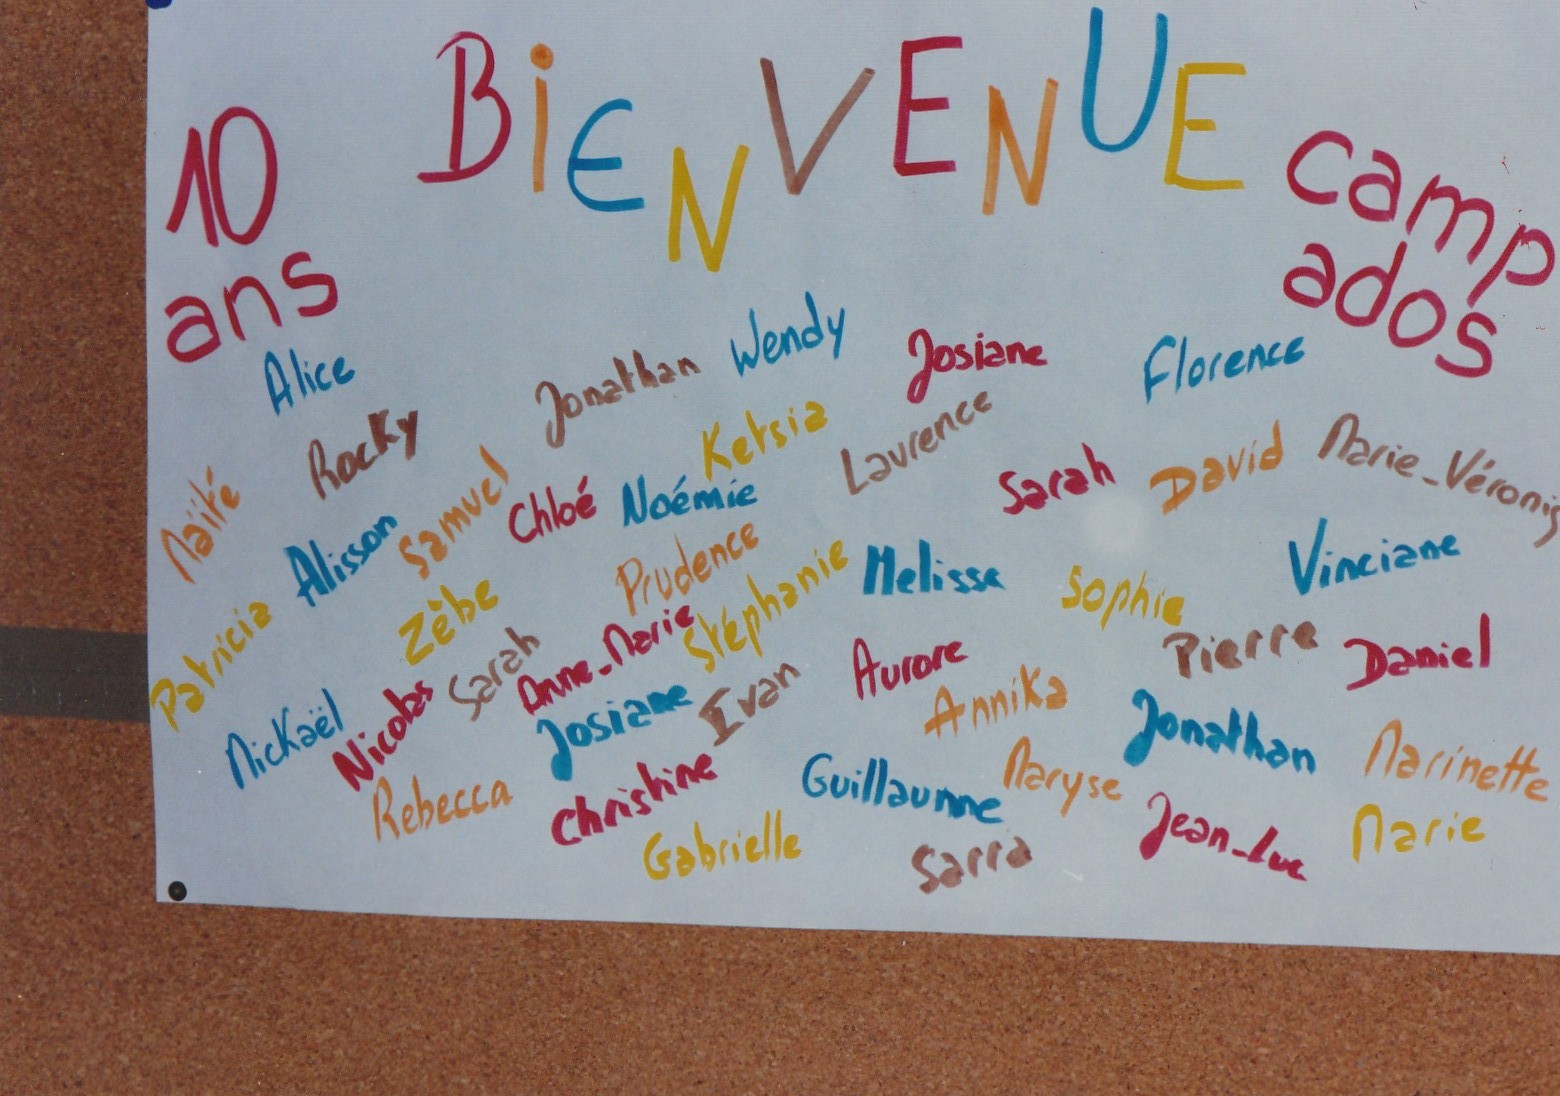 10 ans
BiENVENUE
camp ados
Alice
Jonathan
Wendy
Josiane
Florence
Rocky
Ketsia
Laurence
Sarah
David
Marie_Véroniq
Naïté
Samuel
Chloé
Noémie
Alisson
Prudence
Stéphanie
Melissa
Sophie
Vinciane
Patricia
Zèbe
Sarah
Anne_Marie
Aurore
Pierre
Daniel
Mickaël
Nicolas
Josiane
Evan
Annika
Jonathan
Marinette
Rebecca
Christine
Guillaume
Maryse
Jean_Luc
Marie
Gabrielle
Sarra